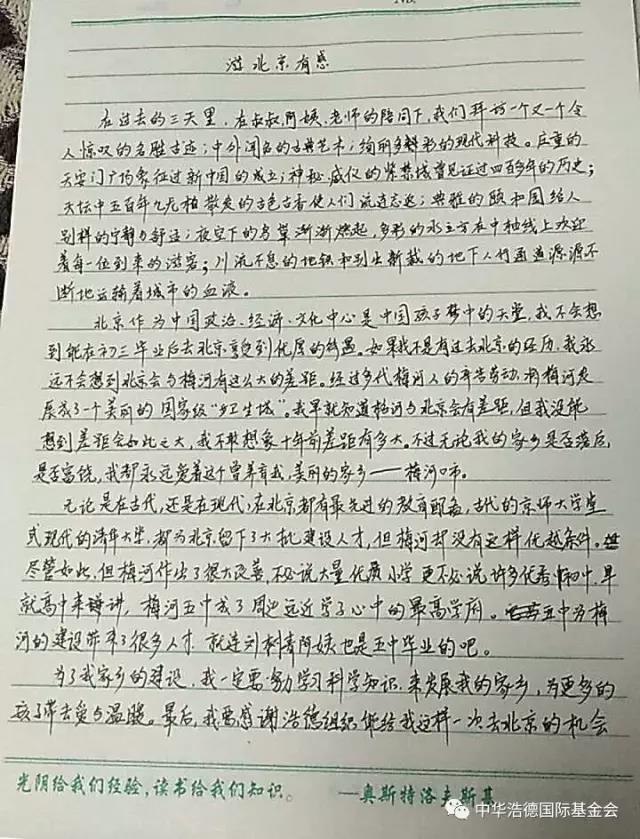 No.
游北京有感
在过去的三天里,在叔叔阿姨、老师的陪同下,我们拜访一个又一个令
人惊叹的名胜古迹;中外闻名的古典艺术;绚丽多彩的现代科技。庄重的
天安门广场象征过新中国的成立;神秘、威仪的紫禁城曾见证过四百多年的历史;
天坛中五百年九龙柏散发的古色古香使人们流连忘返;典雅的颐和园给人
别样的宁静与舒适;夜空下的鸟巢渐渐燃起,多彩的水立方在中轴线上欢迎
着每一位到来的游客;川流不息的地铁和别出新裁的地下人行通道源源不
断地运输着城市的血液。
北京作为中国政治、经济、文化中心是中国孩子梦中的天堂,我不会想
到能在初三毕业后去北京享受到优厚的待遇。如果我不是有过去北京的经历,我永
远不会想到北京会与梅河有这么大的差距。经过多代梅河人的辛苦劳动,将梅河发
展成了一个美丽的国家级“卫生城”。我早就知道梅河与北京会有差距,但我没能
想到差距会如此之大,我不敢想象十年前差距有多大。不过无论我的家乡是否落后,
是否富饶,我都永远爱着这个曾养育我,美丽的家乡——梅河口市。
无论是在古代,还是在现代,在北京都有最先进的教育配备,古代的京师大学堂
或现代的清华大学,都为北京留下了大批建设人才,但梅河却没有这样优越条件。
尽管如此,但梅河作出了很大改善,不必说大量优质小学,更不必说许多优秀初中,单
就高中来讲,梅河五中成了周边远近学子心中的最高学府。五中为梅
河的建设带来了很多人才,就连刘莉青阿姨也是五中毕业的吧。
为了我家乡的建设,我一定要努力学习科学知识,来发展我的家乡,为更多的
孩子带去爱与温暖。最后,我要感谢浩德组织能给我这样一次去北京的机会
光阴给我们经验,读书给我们知识。 ——奥斯特洛夫斯基
中华浩德国际基金会